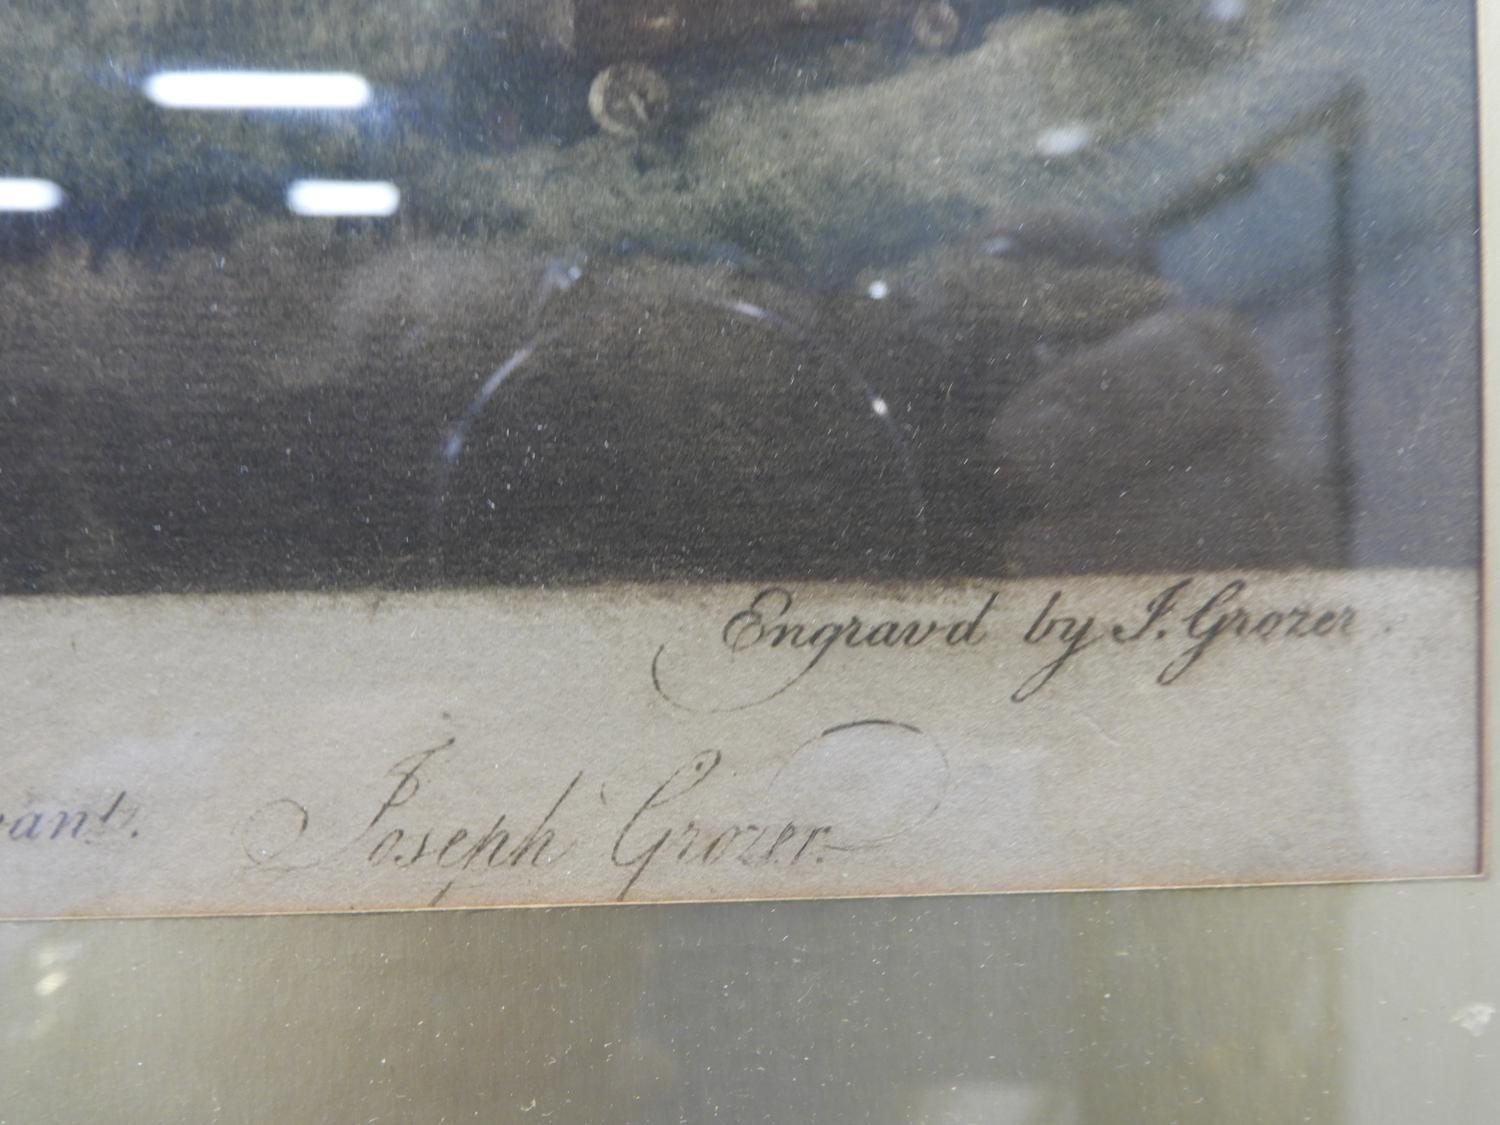 Engravd by J. Grozer.
Joseph Grozer.